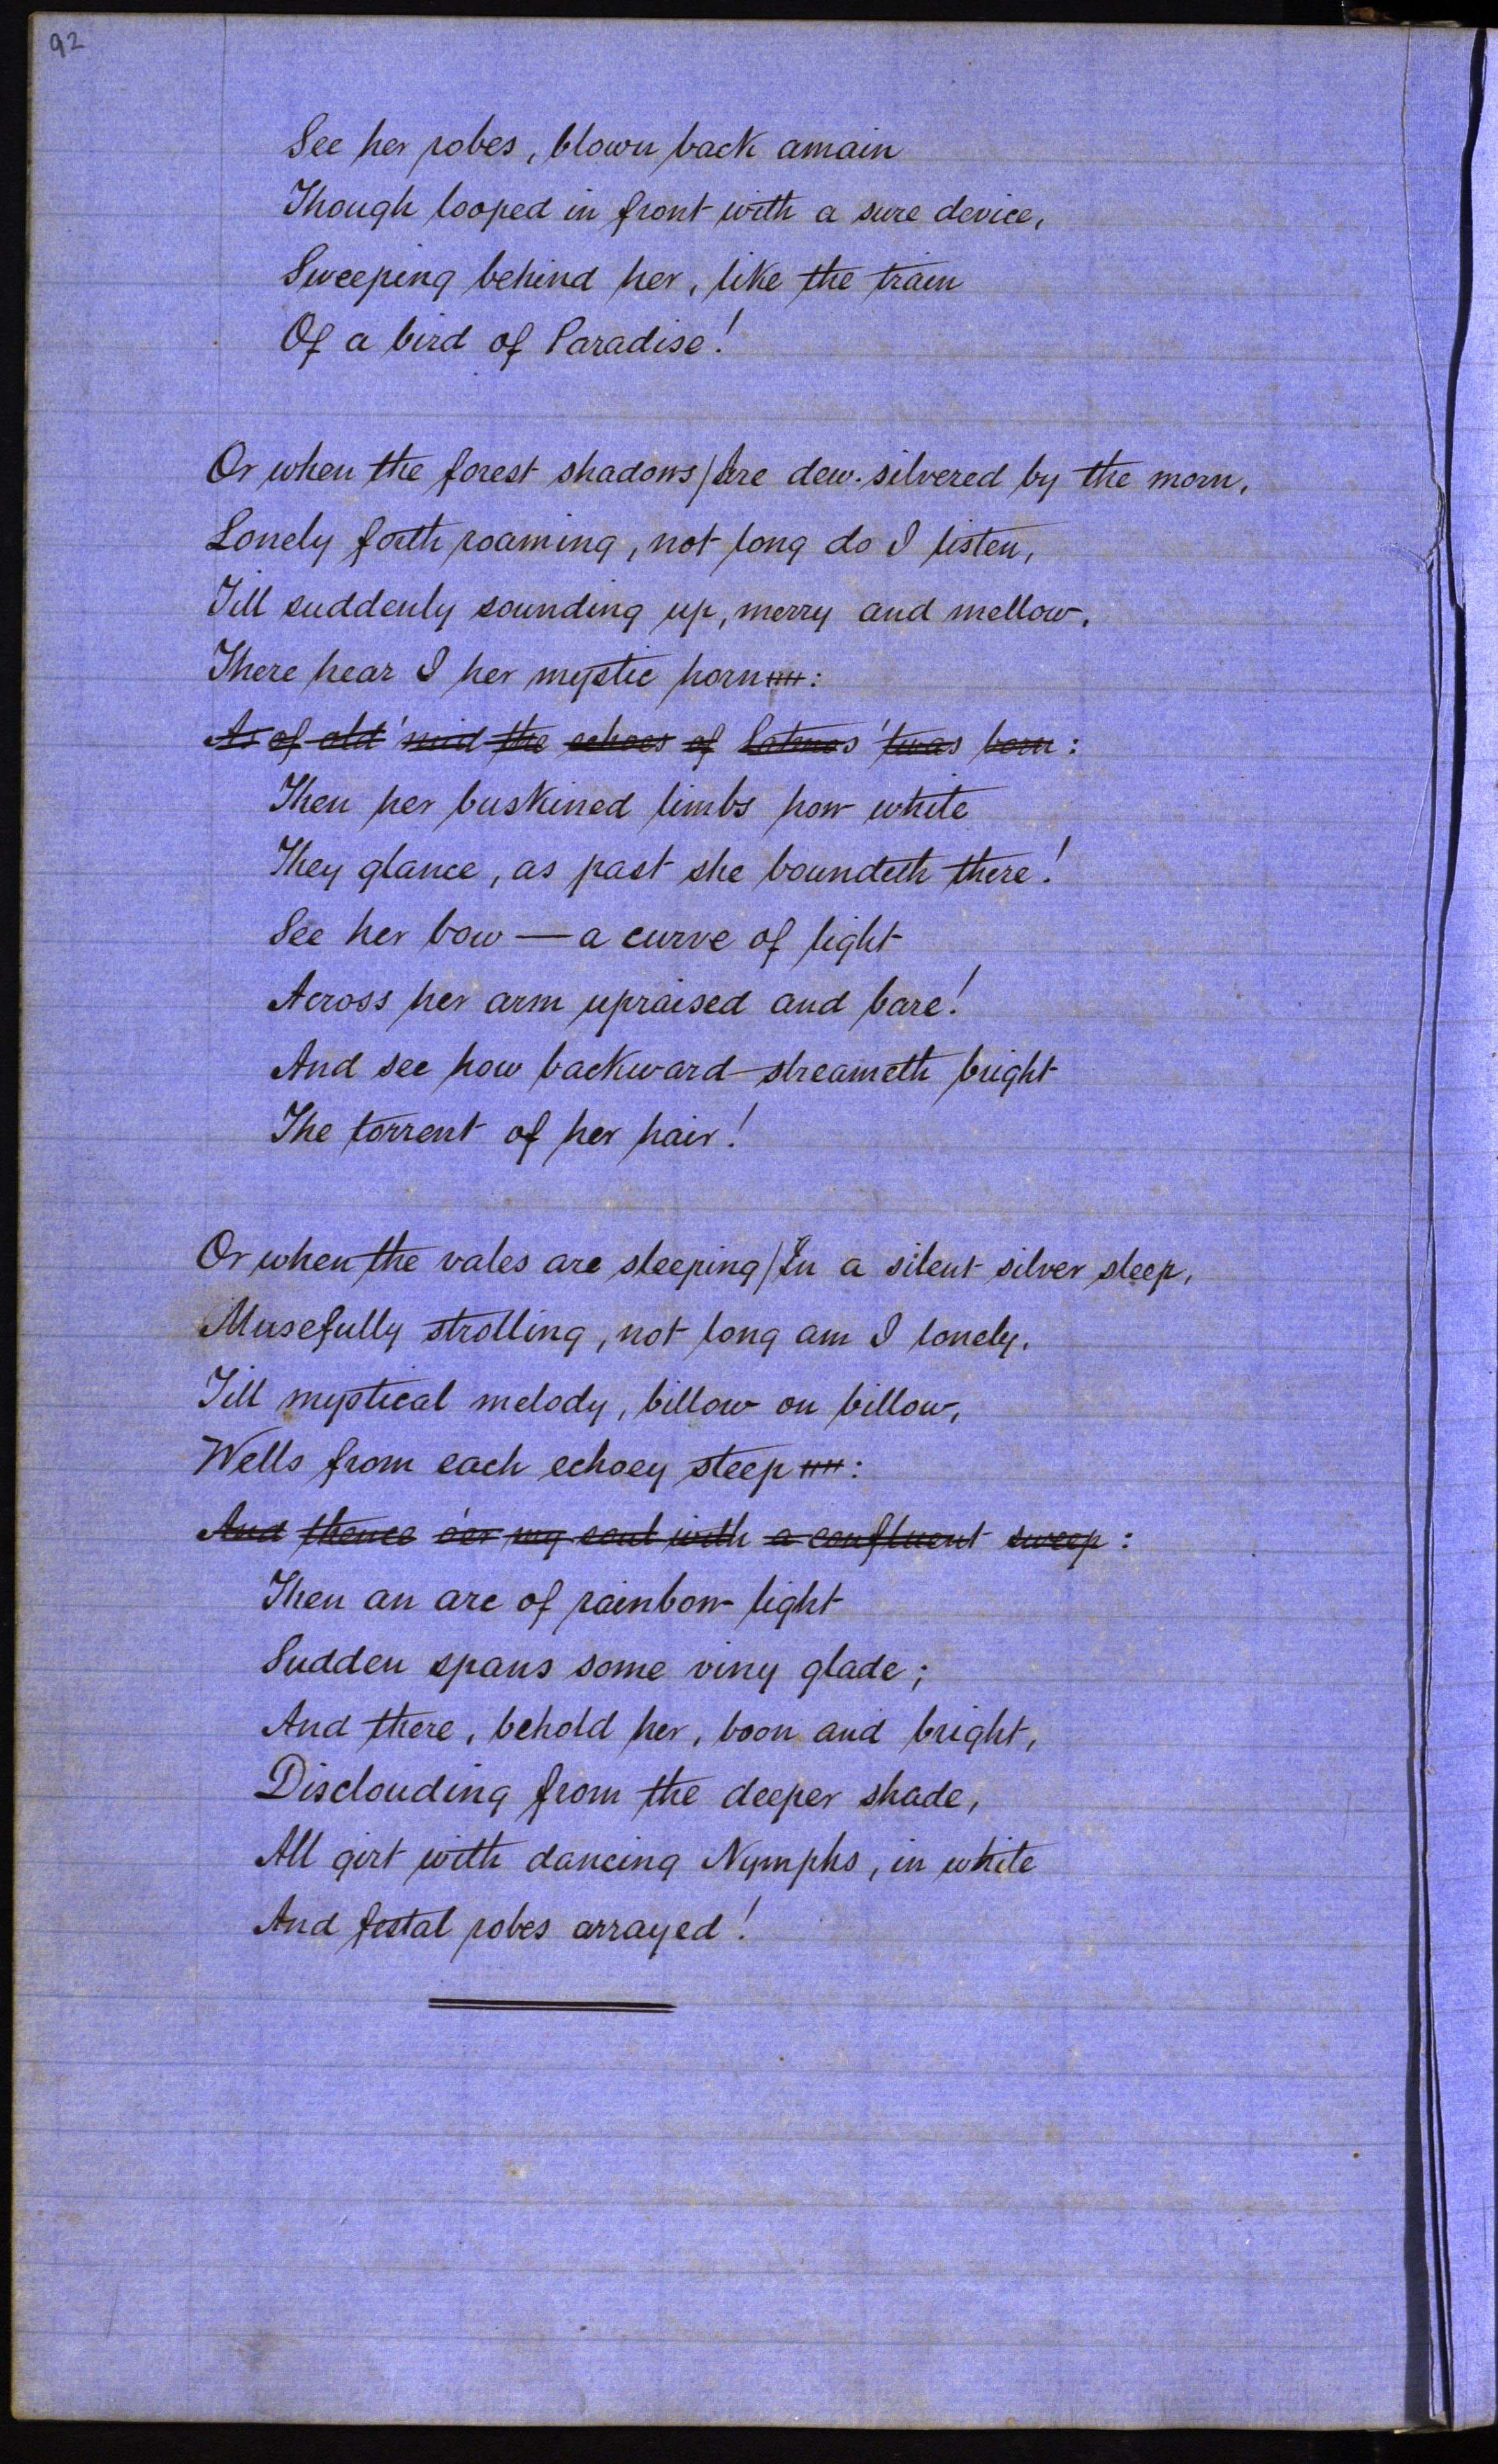 92
See her robes, blown back amain
Though looped in front with a sure device,
Sweeping behind her, like the train
Of a bird of Paradise!
Or when the forest shadows / Are dew-silvered by the morn,
Lonely forth roaming, not long do I listen,
Till suddenly sounding up, merry and mellow,
There hear I her mystic horn :
As of old 'mid the echoes of Latmos 'twas born :
Then her buskined limbs how white
They glance, as past she boundeth there!
See her bow — a curve of light
Across her arm upraised and bare!
And see how backward streameth bright
The torrent of her hair!
Or when the vales are sleeping / In a silent silver sleep,
Musefully strolling, not long am I lonely,
Till mystical melody, billow on billow,
Wells from each echoey steep :
And thence o'er my soul with a confluent sweep :
Then an arc of rainbow light
Sudden spans some viny glade;
And there, behold her, boon and bright,
Disclouding from the deeper shade,
All girt with dancing Nymphs, in white
And festal robes arrayed!